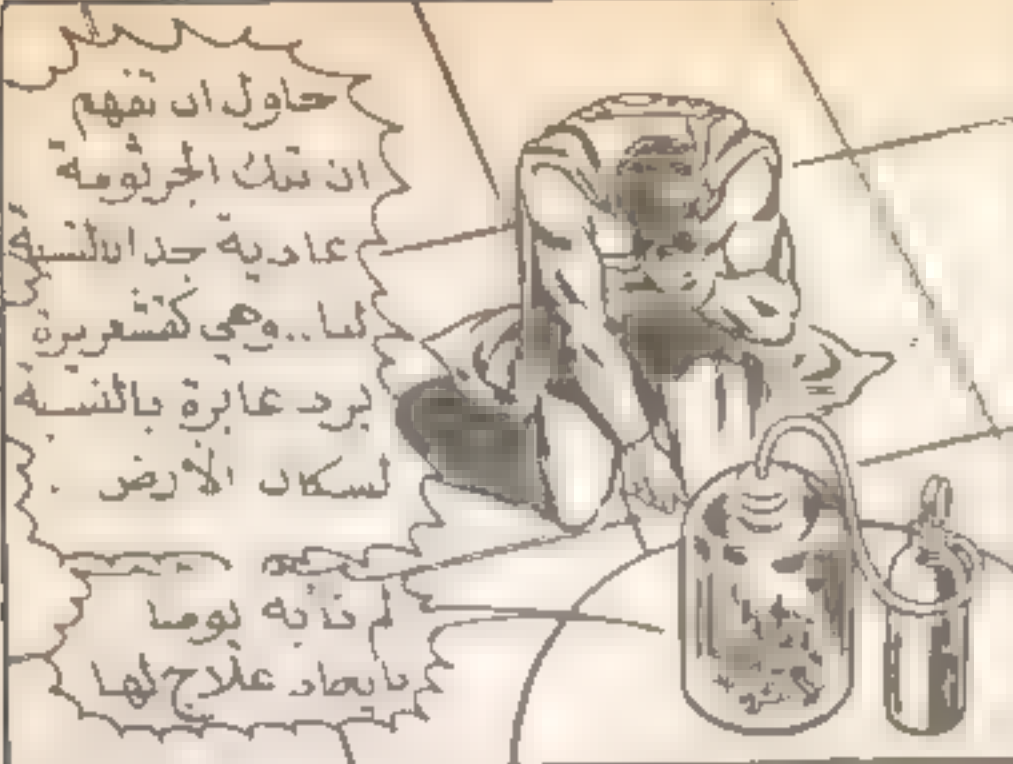 حاول ان تفهم
ان تلك الجرثومة
عادية جدا بالنسبة
لنا..وهى كقشعريرة
برد عابرة بالنسبة
لسكان الأرض .
لم نأبه يوما
بايجاد علاج لها